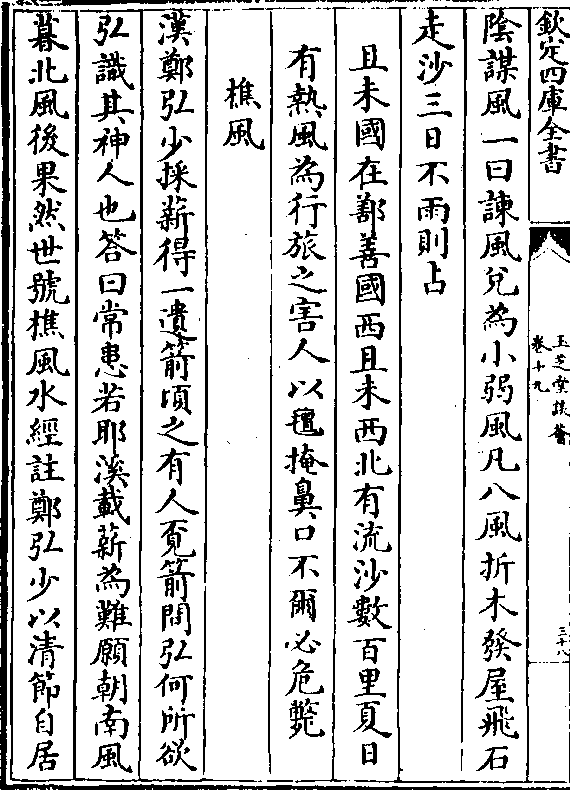 欽定四庫全書
玉芝堂談薈
卷十九
三十八
陰謀風一曰諫風兌為小弱風凡八風折木發屋飛石
走沙三日不雨則占
且末國在鄯善國西且末西北有流沙數百里夏日
有熱風為行旅之害人以氊掩鼻口不爾必危斃
樵風
漢鄭弘少採薪得一遺箭頃之有人覓箭問弘何所欲
弘識其神人也答曰常患若耶溪載薪為難願朝南風
暮北風後果然世號樵風水經註鄭弘少以清節自居